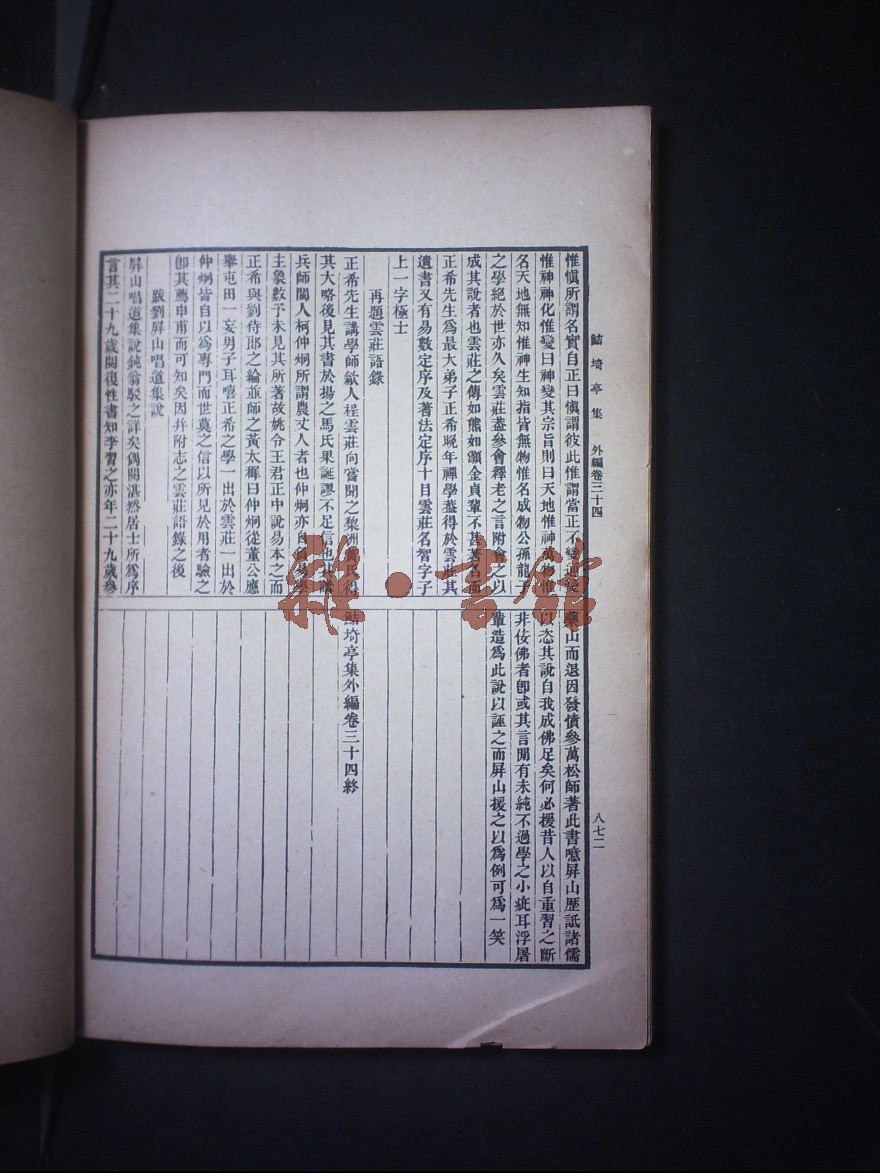 鮚埼亭集 外編卷三十四
八七二
惟愼所謂名實自正曰愼謂彼此惟謂當正不變
惟神神化惟變曰神變其宗旨則曰天地惟神萬物惟
名天地無知惟神生知指皆無物惟名成物公孫龍子
之學絕於世亦久矣雲莊蓋參會釋老之言附會之以
成其說者也雲莊之傳如熊如灝金貞輩不甚著名而
正希先生爲最大弟子正希晚年禪學蓋得於雲莊其
遺書又有易數定序及著法定序十目雲莊名智字子
上一字極士
再題雲莊語錄
正希先生講學師歙人程雲莊向嘗聞之棃洲黃氏
其大略後見其書於揚之馬氏果誕謬不足信也其
兵師閩人柯仲炯所謂農丈人者也仲炯亦自易學
主象數予未見其所著故姚令王君正中說易本之而
正希與劉侍郎之綸並師之黃太穉曰仲炯從董公應
舉屯田一妄男子耳嘻正希之學一出於雲莊一出於
仲炯皆自以爲專門而世莫之信以所見於用者驗之
卽其薦申甫而可知矣因幷附志之雲莊語錄之後
跋劉屛山唱道集說
屛山唱道集說鈍翁駁之詳矣偶閱湛然居士所爲序
言其二十九歲閱復性書知李習之亦年二十九歲參
藥山而退因發憤參萬松師著此書噫屛山歷詆諸儒
以恣其說自我成佛足矣何必援昔人以自重習之斷
非佞佛者卽或其言閒有未純不過學之小疵耳浮屠
輩造爲此說以誣之而屛山援之以爲例可爲一笑
鮚埼亭集外編卷三十四終
雜·書館